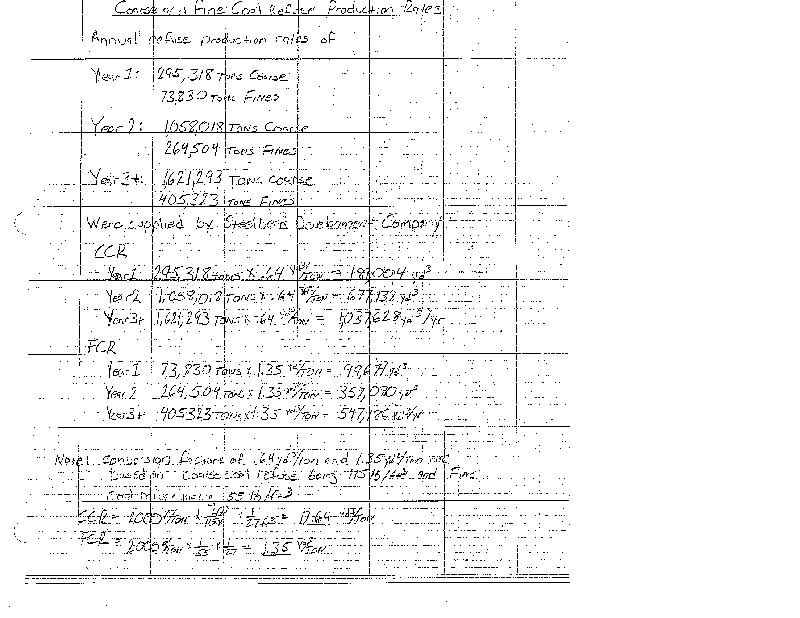 Coarse and Fine Coal Refuse Production Rates
Annual refuse production rates of
Year 1: 295,318 Tons Coarse
73,830 Tons Fines
Year 2: 1,058,018 Tons Coarse
264,504 Tons Fines
Year 3+: 1,621,293 Tons Coarse
405,323 Tons Fines
Were supplied by Steelhead Development Company
CCR
Year 1 295,318 Tons x .64 yd³/Ton = 189,004 yd³
Year 2 1,058,018 Tons x .64 yd³/Ton = 677,132 yd³
Year 3+ 1,621,293 Tons x .64 yd³/Ton = 1,037,628 yd³/yr
FCR
Year 1 73,830 Tons x 1.35 yd³/Ton = 99,671 yd³
Year 2 264,504 Tons x 1.35 yd³/Ton = 357,080 yd³
Year 3+ 405323 Tons x 1.35 yd³/Ton = 547,186 yd³/yr
Note: Conversion factors of .64 yd³/ton and 1.35 yd³/ton are
based on coarse coal refuse being 115 lb/ft³ and Fine
coal refuse being 55 lb/ft³
CCR = 2000 lb/Ton x 1/115 x 1/27 ft³ = 0.64 yd³/Ton
FCR =
2000 lb/Ton x 1/55 x 1/27 = 1.35 yd³/Ton